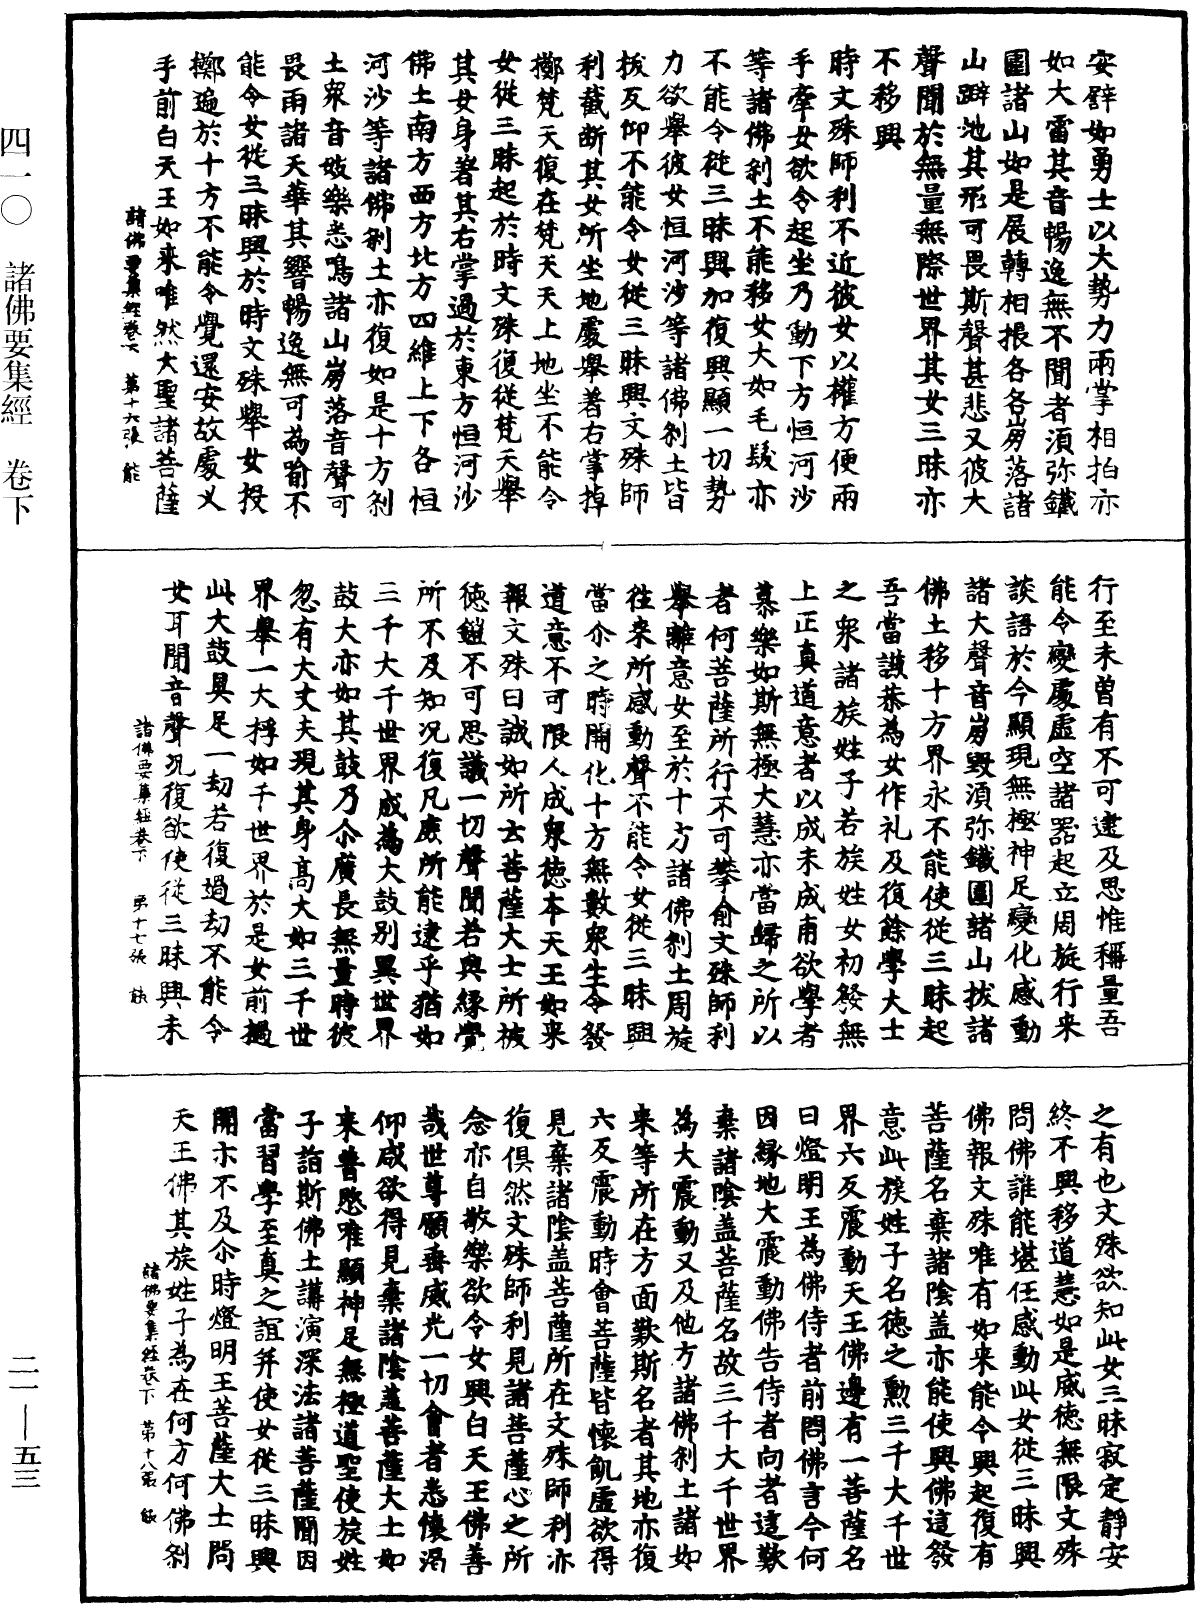 安譬如勇士以大勢力兩掌相拍亦
如大雷其音暢逸無不聞者須弥鐵
圍諸山如是展轉相振各各崩落諸
山躃地其形可畏斯聲甚悲又彼大
聲聞於無量無際世界其女三昧亦
不移興
時文殊師利不近彼女以權方便兩
手牽女欲令起坐乃動下方恒河沙
等諸佛刹土不能移女大如毛髮亦
不能令從三昧興加復興顯一切勢
力欲舉彼女恒河沙等諸佛刹土皆
拔反仰不能令女從三昧興文殊師
利截斷其女所坐地處舉著右掌掉
擲梵天復在梵天天上地坐不能令
女從三昧起於時文殊復從梵天舉
其女身著其右掌過於東方恒河沙
佛土南方西方北方四維上下各恒
河沙等諸佛刹土亦復如是十方刹
土衆音妓樂悉鳴諸山崩落音聲可
畏雨諸天華其響暢逸無可為喻不
能令女從三昧興於時文殊舉女投
擲遍於十方不能令覺還安故處叉
手前白天王如来唯然大聖諸菩薩
諸佛要集經卷下 第十六張 能
行至未曾有不可逮及思惟稱量吾
能令變處虛空諸器起立周旋行来
談語於今顯現無極神足變化感動
諸大聲音崩毀須弥鐵圍諸山拔諸
佛土移十方界永不能使從三昧起
吾當謙恭為女作礼及復餘學大士
之衆諸族姓子若族姓女初發無
上正真道意者以成未成甫欲學者
慕樂如斯無極大慧亦當歸之所以
者何菩薩所行不可攀俞文殊師利
舉離意女至於十方諸佛刹土周旋
往来所感動聲不能令女從三昧興
當尒之時開化十方無數衆生令發
道意不可限人成衆德本天王如来
報文殊曰誠如所云菩薩大士所被
德鎧不可思議一切聲聞若與緣覺
所不及知况復凡庶所能逮乎猶如
三千大千世界成為大鼓別異世界
鼓大亦如其鼓乃尒廣長無量時彼
忽有大丈夫現其身高大如三千世
界舉一大桴如千世界於是女前撾
此大鼓具足一劫若復過劫不能令
女耳聞音聲况復欲使從三昧興未
諸佛要集經卷下 第十七張 能
之有也文殊欲知此女三昧寂定靜安
終不興移道慧如是威德無限文殊
問佛誰能堪任感動此女從三昧興
佛報文殊唯有如来能令興起復有
菩薩名棄諸陰蓋亦能使興佛這發
意此族姓子名德之勲三千大千世
界六反震動天王佛邊有一菩薩名
曰燈明王為佛侍者前問佛言今何
因緣地大震動佛告侍者向者這歎
棄諸陰蓋菩薩名故三千大千世界
為大震動又及他方諸佛刹土諸如
来等所在方面歎斯名者其地亦復
六反震動時會菩薩皆懷飢虛欲得
見棄諸陰蓋菩薩所在文殊師利亦
復俱然文殊師利見諸菩薩心之所
念亦自欽樂欲令女興白天王佛善
哉世尊願垂威光一切會者悉懷渴
仰咸欲得見棄諸陰蓋菩薩大士如
来普愍唯顯神足無極道聖使族姓
子詣斯佛土講演深法諸菩薩聞因
當習學至真之誼并使女從三昧興
開不及尒時燈明王菩薩大士問
天王佛其族姓子為在何方何佛刹
諸佛要集經卷下 第十八張 能
四一〇 諸佛要集經 卷下
二一—五三